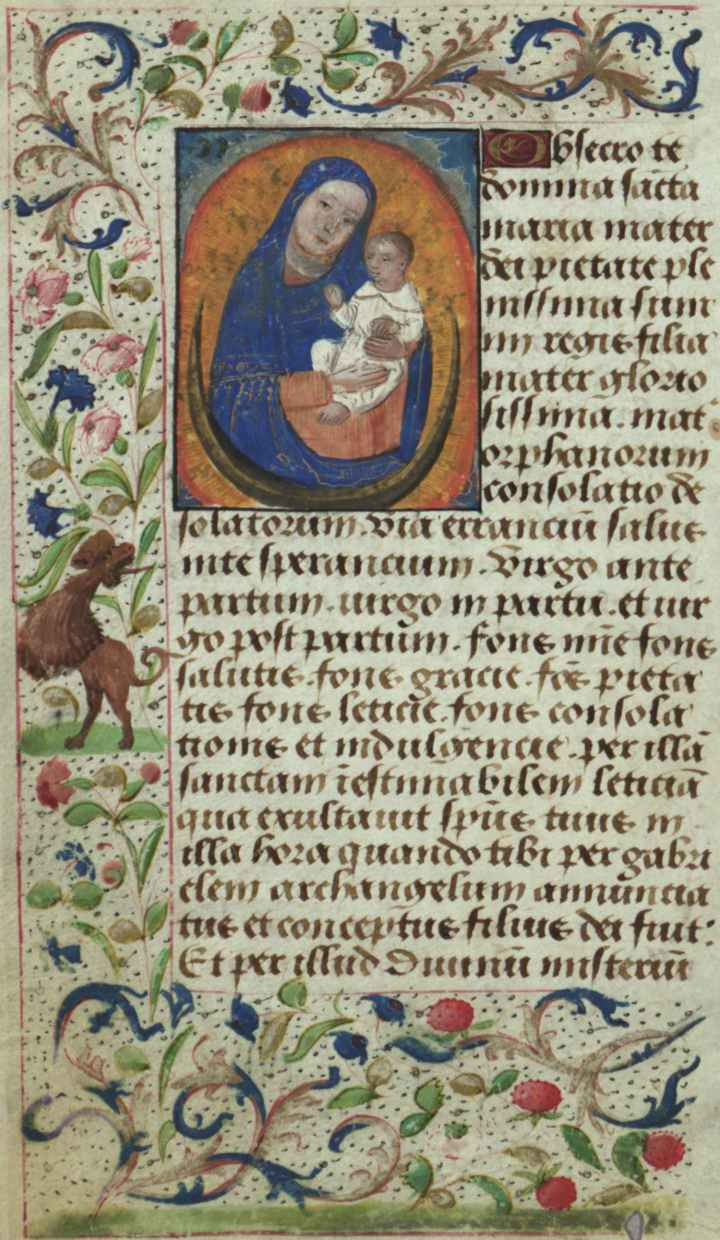 Obsecro te
domina sācta
maria mater
dei pietate ple
nissima sum
mi regis filia
mater glorio
sissima. mat᷑
orphanorum
consolatio de
solatorum. via erranciū salus
inte sperancium. Virgo ante
partum. uirgo in partu. et uir
go post partum. fons mīe fons
salutis. fons gracie. fōs pieta
tis fons leticie. fons consola
tionis et indulgencie. per illā
sanctam īestimabilem leticiā
qua exultauit sp̄us tuus in
illa hora quando tibi per gabri
elem archangelum annuncia
tus et conceptus filius dei fuit.
Et per illud diuinū misteriū